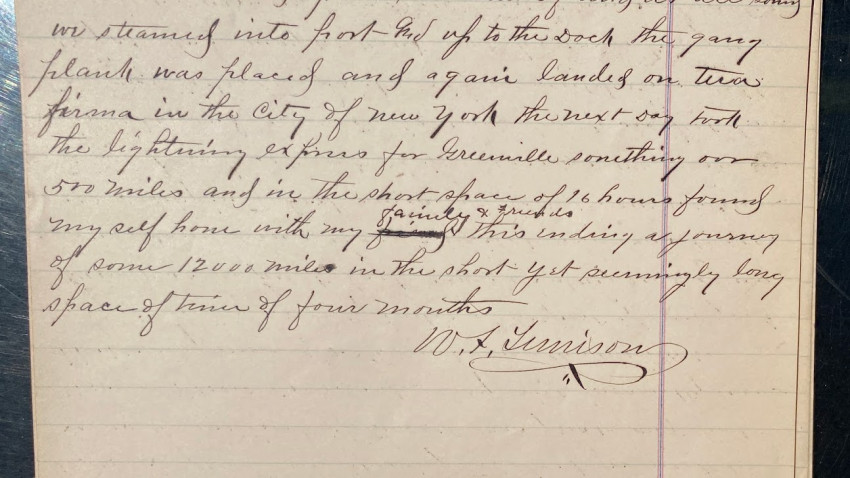 we steamed into port and up to the Dock the gang
plank was placed and again landed on terra
firma in the City of new York the next Day took
the lightning express for Greenville something over
500 miles and in the short space of 16 hours found
family & friends
my self home with my this ending a journey
of some 12000 miles in the short yet seemingly long
space of time of four months